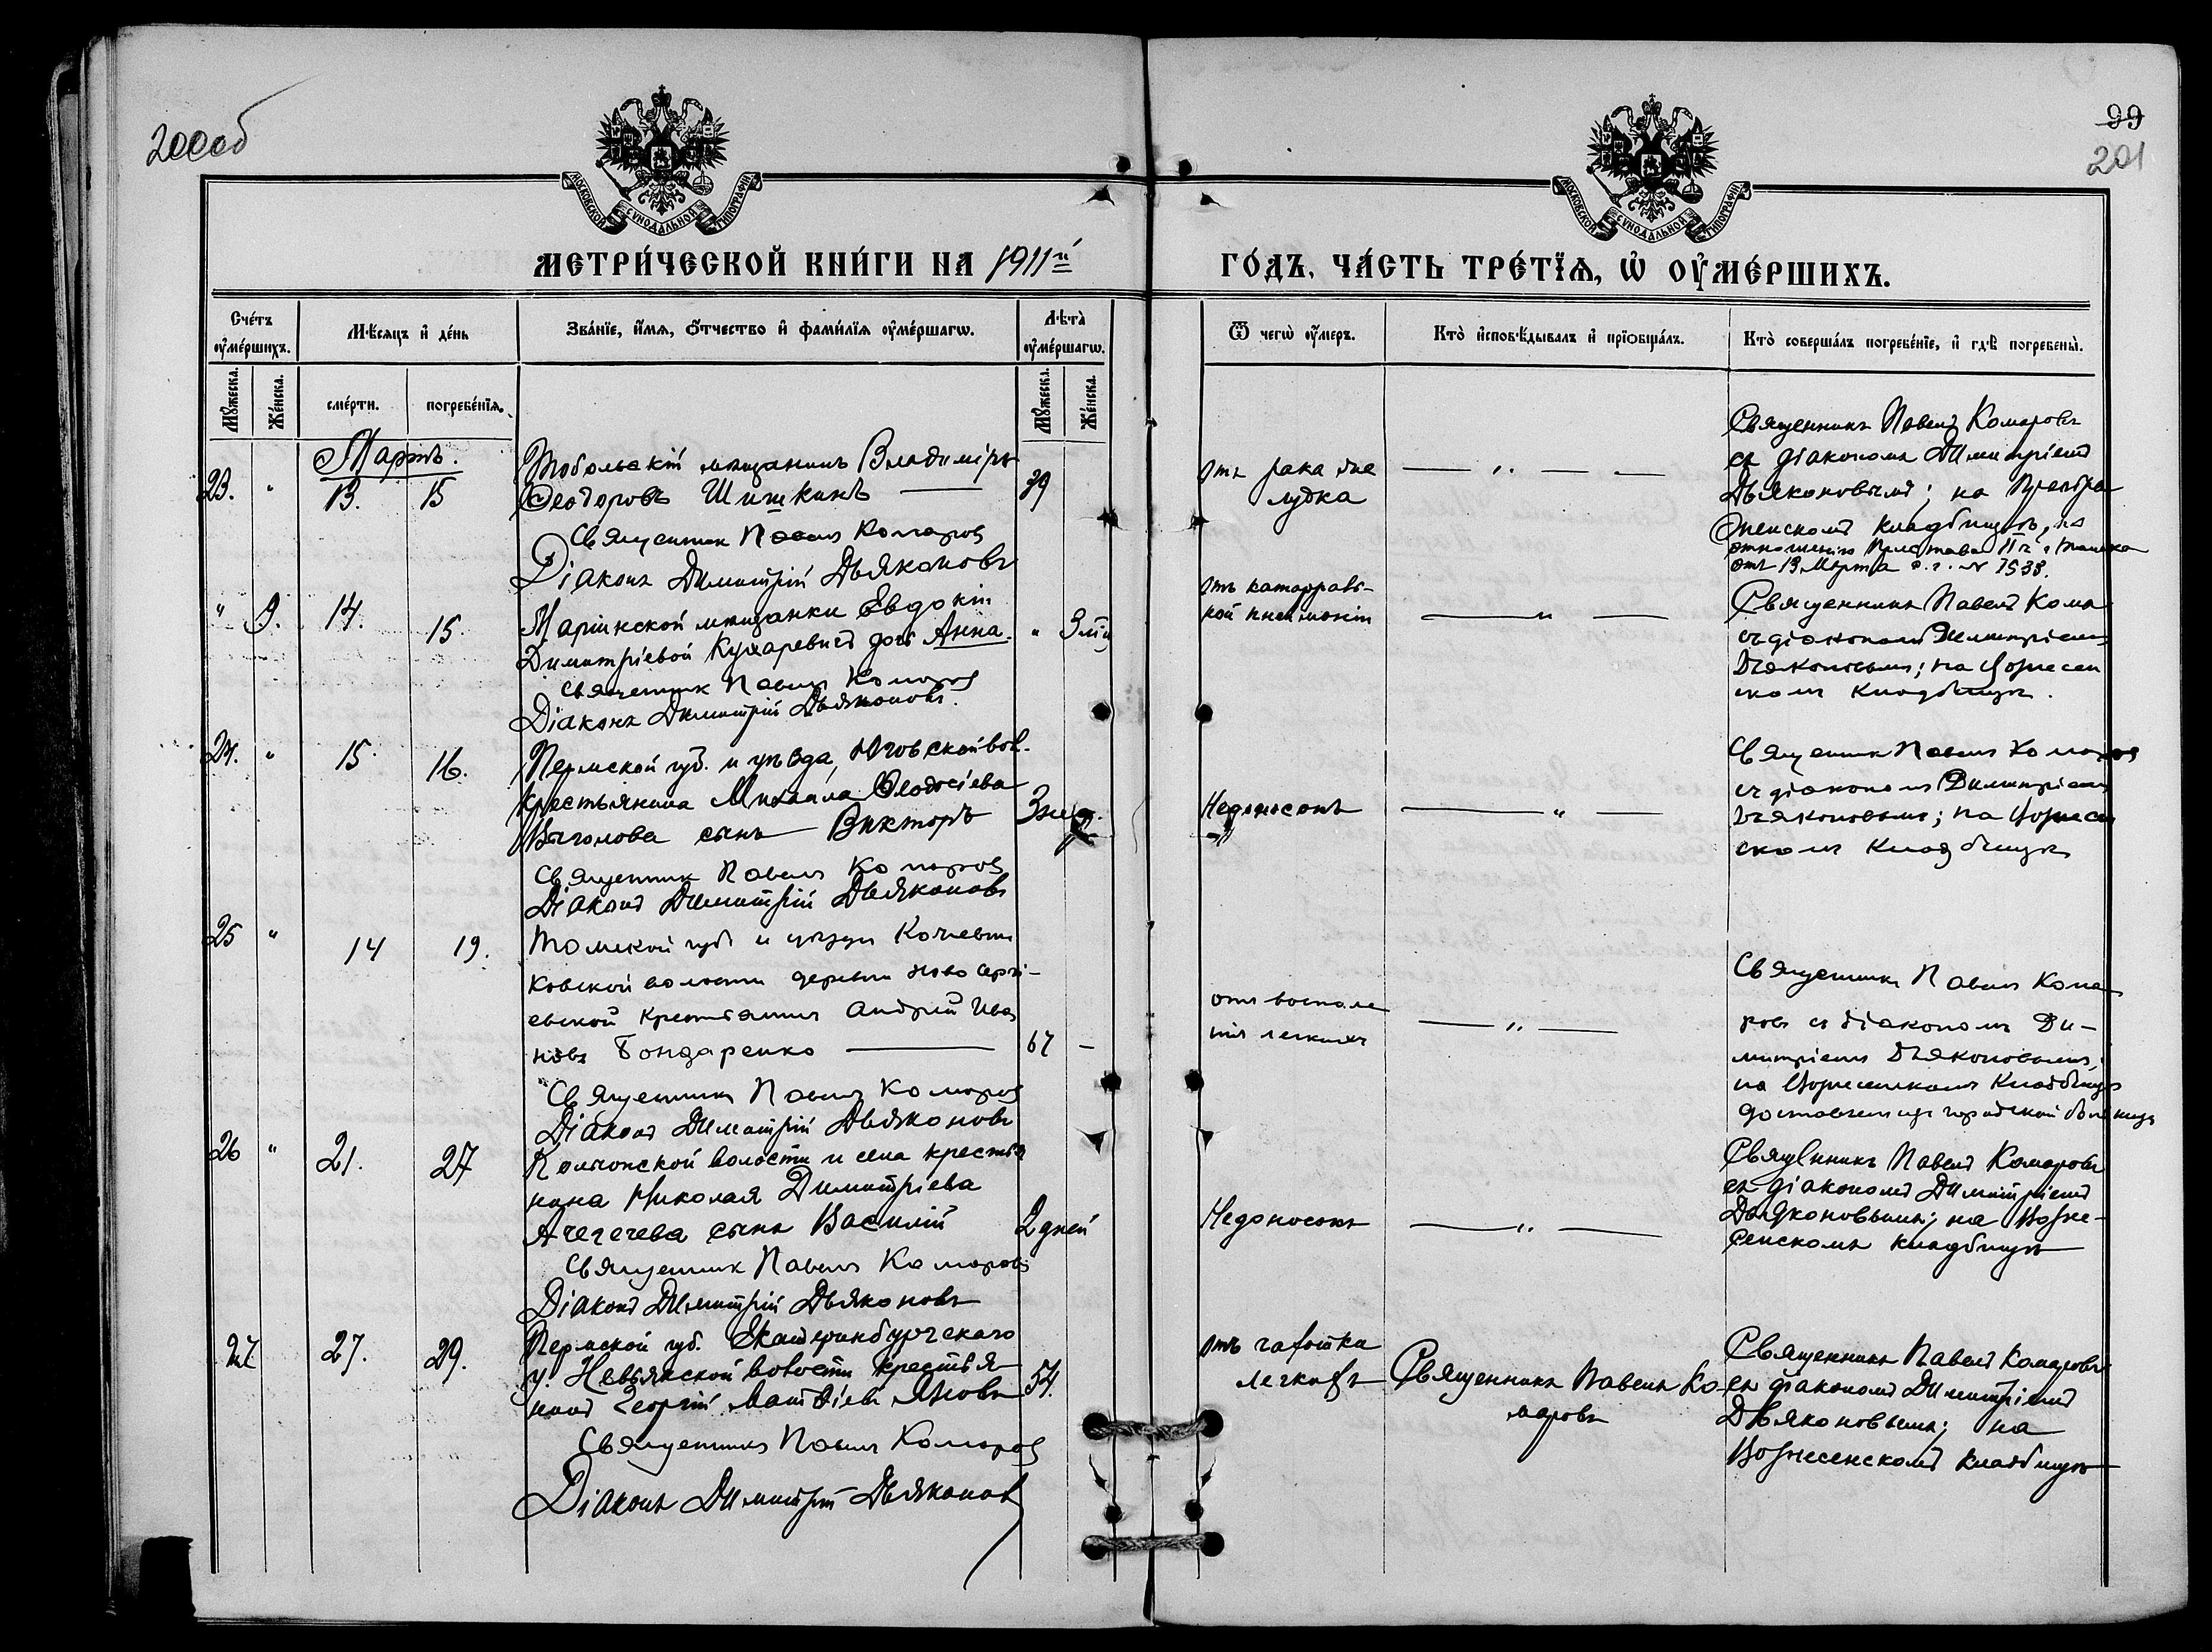 200об
99
201
МОСКОВСКОЙ СѴНОДАЛЬНОЙ ТИПОГРАФІИ
МОСКОВСКОЙ СѴНОДАЛЬНОЙ ТИПОГРАФІИ
МЕТРИ́ЧЕСКОЙ КНИ́ГИ НА 1911й
ГО́ДЪ, ЧА́СТЬ ТРЕ́ТЇѦ, Ѽ ОУ҆МЕ́РШИХЪ.
Сче́тъ оу҆ме́ршихъ.
Мꙋжеска.
Же́нска.
Мѣ́сяцъ и҆ де́нь
сме́рти.
погребе́нїѧ.
Зва́нїе, и҆́мѧ, ѻ҆́тчество и҆ фами́лїѧ оу҆ме́ршагѡ.
Лѣ̀та оу҆ме́ршагѡ.
Мꙋжеска.
Же́нска.
Ѿ чегѡ̀ оу҆́меръ.
Кто̀ и҆сповѣ́дывалъ и҆ прїѡбща́лъ.
Кто̀ соверша́лъ погребе́нїе, и҆ гдѣ̀ погребены̀.
Мартъ.
23. " 13. 15
Тобольскій мѣщанинъ Владиміръ
Ѳеодоровъ Шишкинъ
39
Священник Павелъ Комаров
Діаконъ Димитрій Дьяконовъ
Отъ рака же
лудка
Священникъ Павелъ Комаровъ
съ діакономъ Димитріемъ
Дьяконовымъ; на Преобра
женскомъ кладбищѣ, по
отношенію Пристава II ч. г. Томска
отъ 13 Марта с. г. № 1538.
" 9. 14. 15.
Маріинской мѣщанки Евдокіи
Димитріевой Кухаревичъ дочь Анна.
" 3
Священник Павелъ Комаров
Діаконъ Димитрій Дьяконовъ.
Отъ катарраль-
ной пневмоніи
Священникъ Павелъ Кома
съ діакономъ Димитріемъ
Дьяконовымъ; на Вознесен
скомъ кладбищѣ.
24. " 15. 16.
Пермской губ. и уѣзда, Юговской вол.
крестьянина Михаила Ѳеодосіева
сынъ Викторъ
3
Священник Павелъ Комаров
Діаконъ Димитрій Дьяконовъ
Недоносокъ
Священник Павелъ Комаров
съ діакономъ Димитріемъ
Дьяконовымъ; на Вознесен
скомъ кладбищѣ
25 " 14 19.
Томской губ и уѣзда
ковской волости деревни Ново Серги-
евской крестьянинъ Андрей Ива
новъ Бондаренко
67 –
Священникъ Павелъ Комаров
Діаконъ Димитрій Дьяконовъ
отъ воспале
нія легкихъ
Священникъ Павелъ Кома
ровъ съ діакономъ Ди-
митріемъ Дьяконовымъ;
на Вознесенскомъ кладбищѣ
доставленъ изъ городской больницы
26 " 21. 27
волости и села крестья
нина Николая Димитріева
сынъ Василій
2 дней
Священник Павелъ Комаровъ
Діаконъ Димитрій Дьяконовъ
Недоносокъ
Священникъ Павелъ Комаровъ
съ діакономъ Димитріемъ
Дьяконовымъ; на Возне-
сенскомъ кладбищѣ
27 27. 29.
Пермской губ. Екатеринбургскаго
у. Невьянской волости крестья
нинъ Георгій Матѳіевъ
54.
Священникъ Павелъ Комаров
Діаконъ Димитрій Дьяконов
Отъ чахотки
легкихъ
Священникъ Павелъ Ко
маровъ
Священникъ Павелъ Комаровъ
съ діакономъ Димитріемъ
Дьяконовымъ; на
Вознесенскомъ кладбищѣ